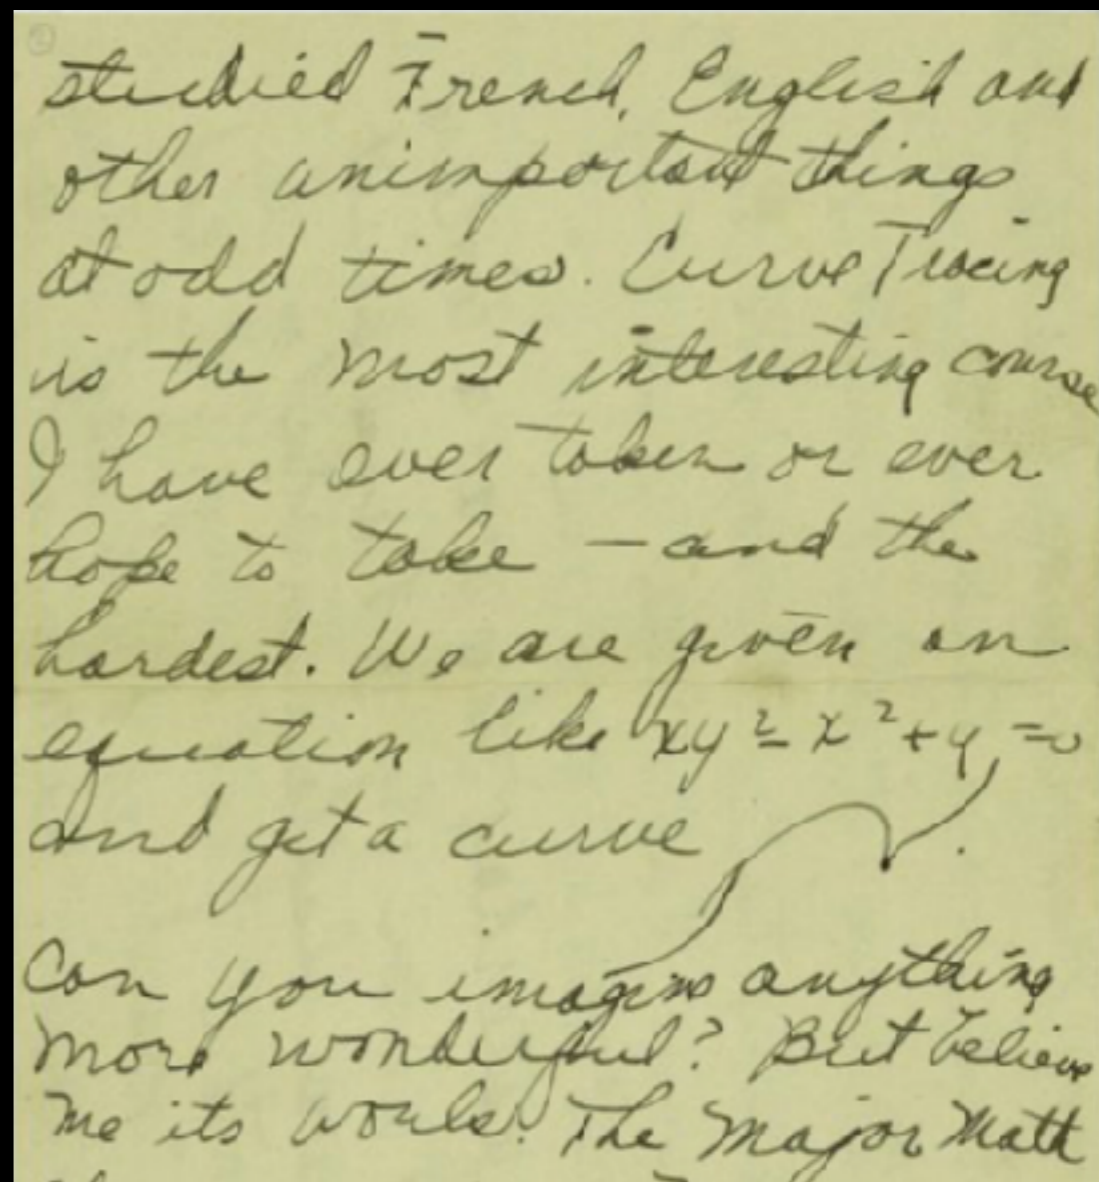 ②
studied French, English and
other unimportant things
at odd times. Curve Tracing
is the most interesting course
I have ever taken or ever
hope to take — and the
hardest. We are given an
equation like xy² - x² + y = 0
and get a curve .
Can you imagine anything
more wonderful? But believe
me its work. The Major Math